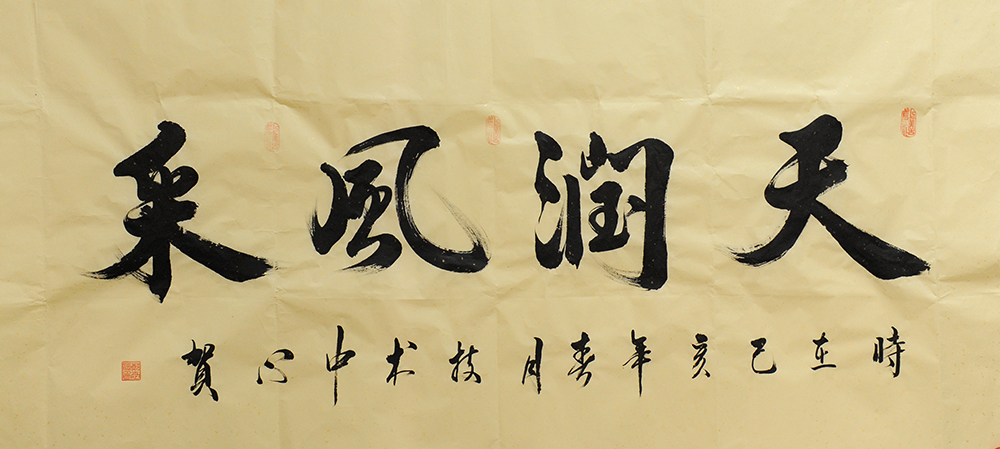 天潤風采
時在己亥年春月技术中心賀